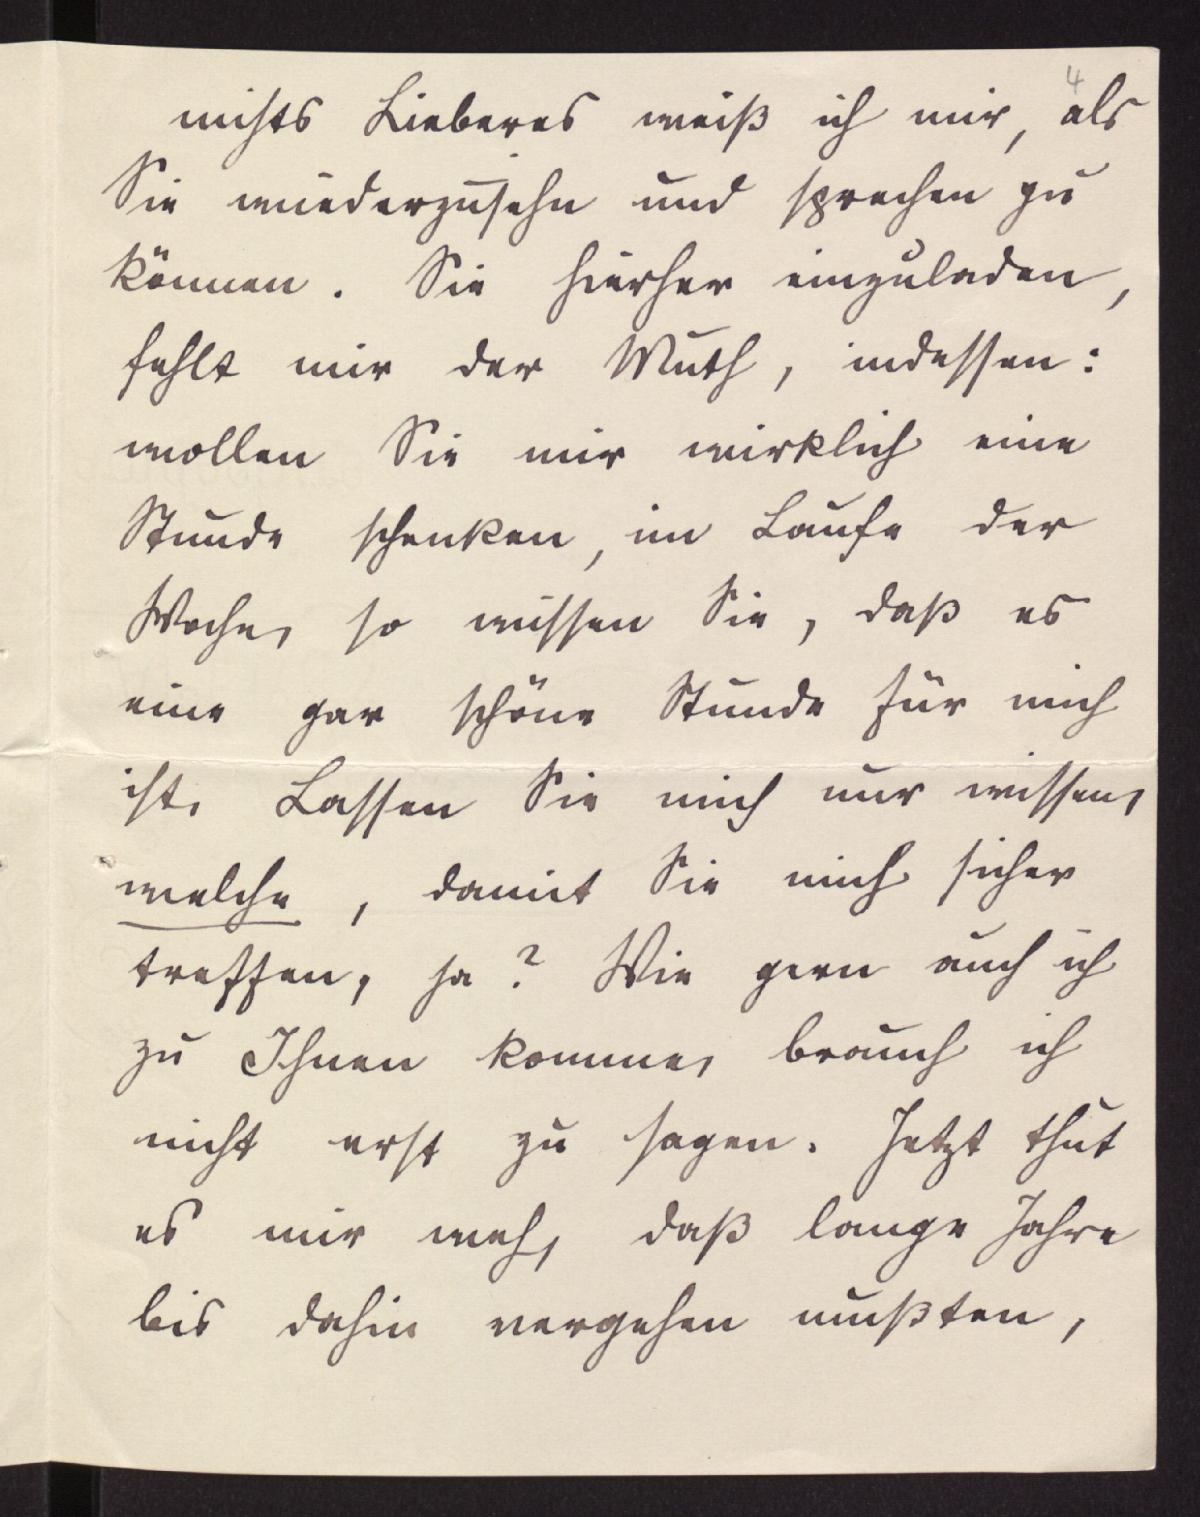 4
nichts Lieberes weiß ich mir, als
Sie wiederzusehn und sprechen zu
können. Sie hierher einzuladen,
fehlt mir der Muth, indessen:
wollen Sie mir wirklich eine
Stunde schenken, im Laufe der
Woche, so wissen Sie, daß es
eine gar schöne Stunde für mich
ist. Lassen Sie mich nur wissen,
welche, damit Sie mich sicher
treffen, ja? Wie gern auch ich
zu Ihnen komme, brauch ich
nicht erst zu sagen. Jetzt thut
es mir weh, daß lange Jahre
bis dahin vergehen mußten,